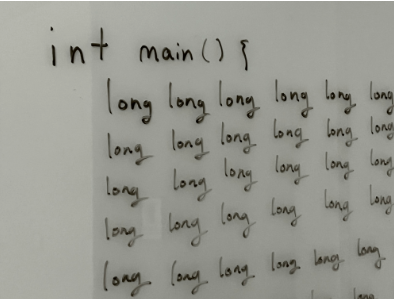 int main() {
long long long long long long
long long long long long long
long long long long long long
long long long long long long
long long long long long long
long long